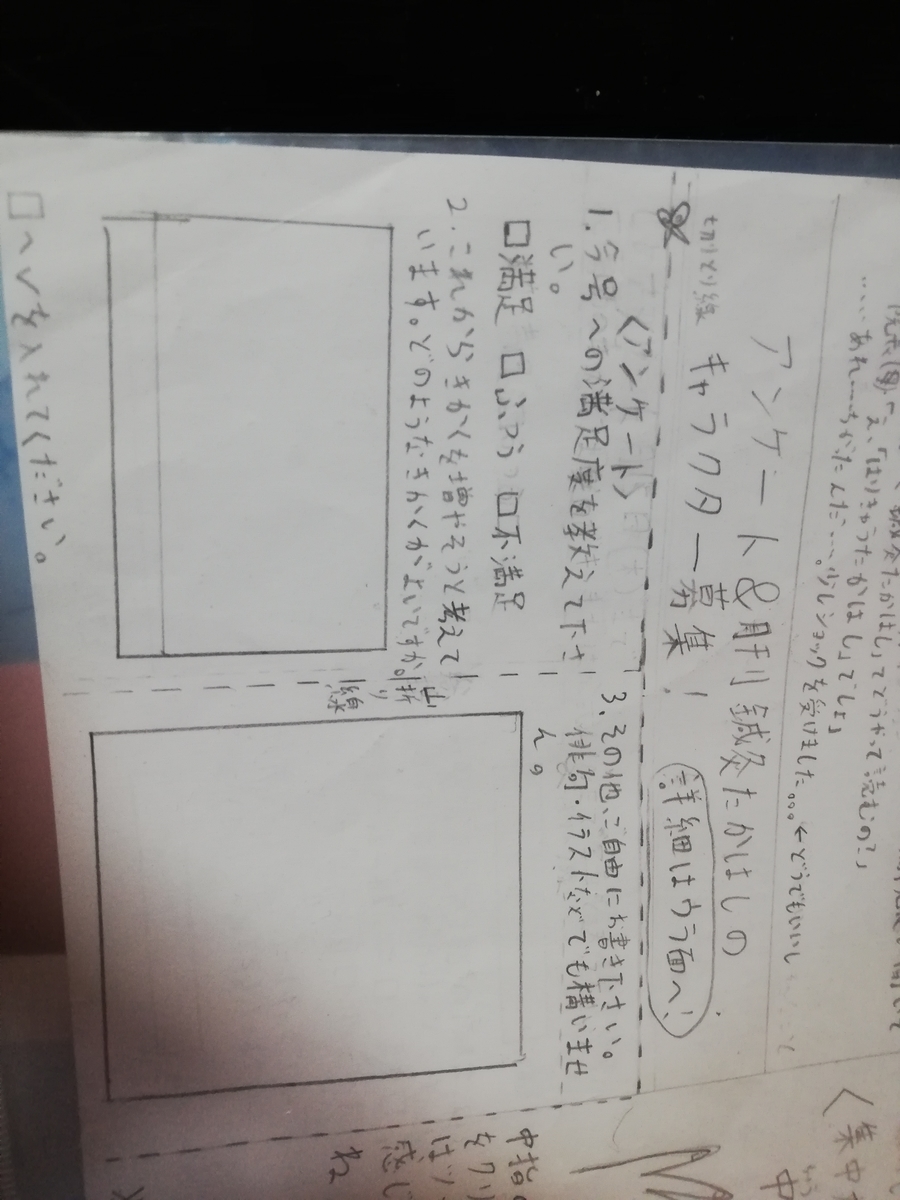 え、「はりきゅうたかはしってどうやって読むの?」
「はりきゅうたかはし」でしょ」
……あれ――ちがったんだ…。少しショックを受けました。。。←どうでもいいし
アンケート&月刊 鍼灸たかはしの
キャラクター募集!
詳細はウラ面へ!
切りとり線
〈アンケート〉
1. 今号への満足度を教えて下さ
い。
□満足 □ふつう □不満足
2. これからきかくを増やそうと考えて
います。どのようなきかくがよいですか。
□へ✓を入れてください。
山折り線
3. その他、ご自由にお書き下さい。
俳句・イラストなどでも構いませ
ん。
〈集中
中
中指の
をクリ
はツ
感じ
ね